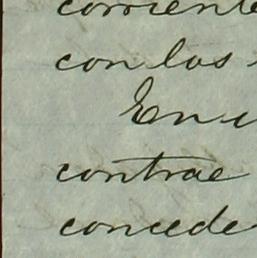 corriente
con los
En
contrae
concede